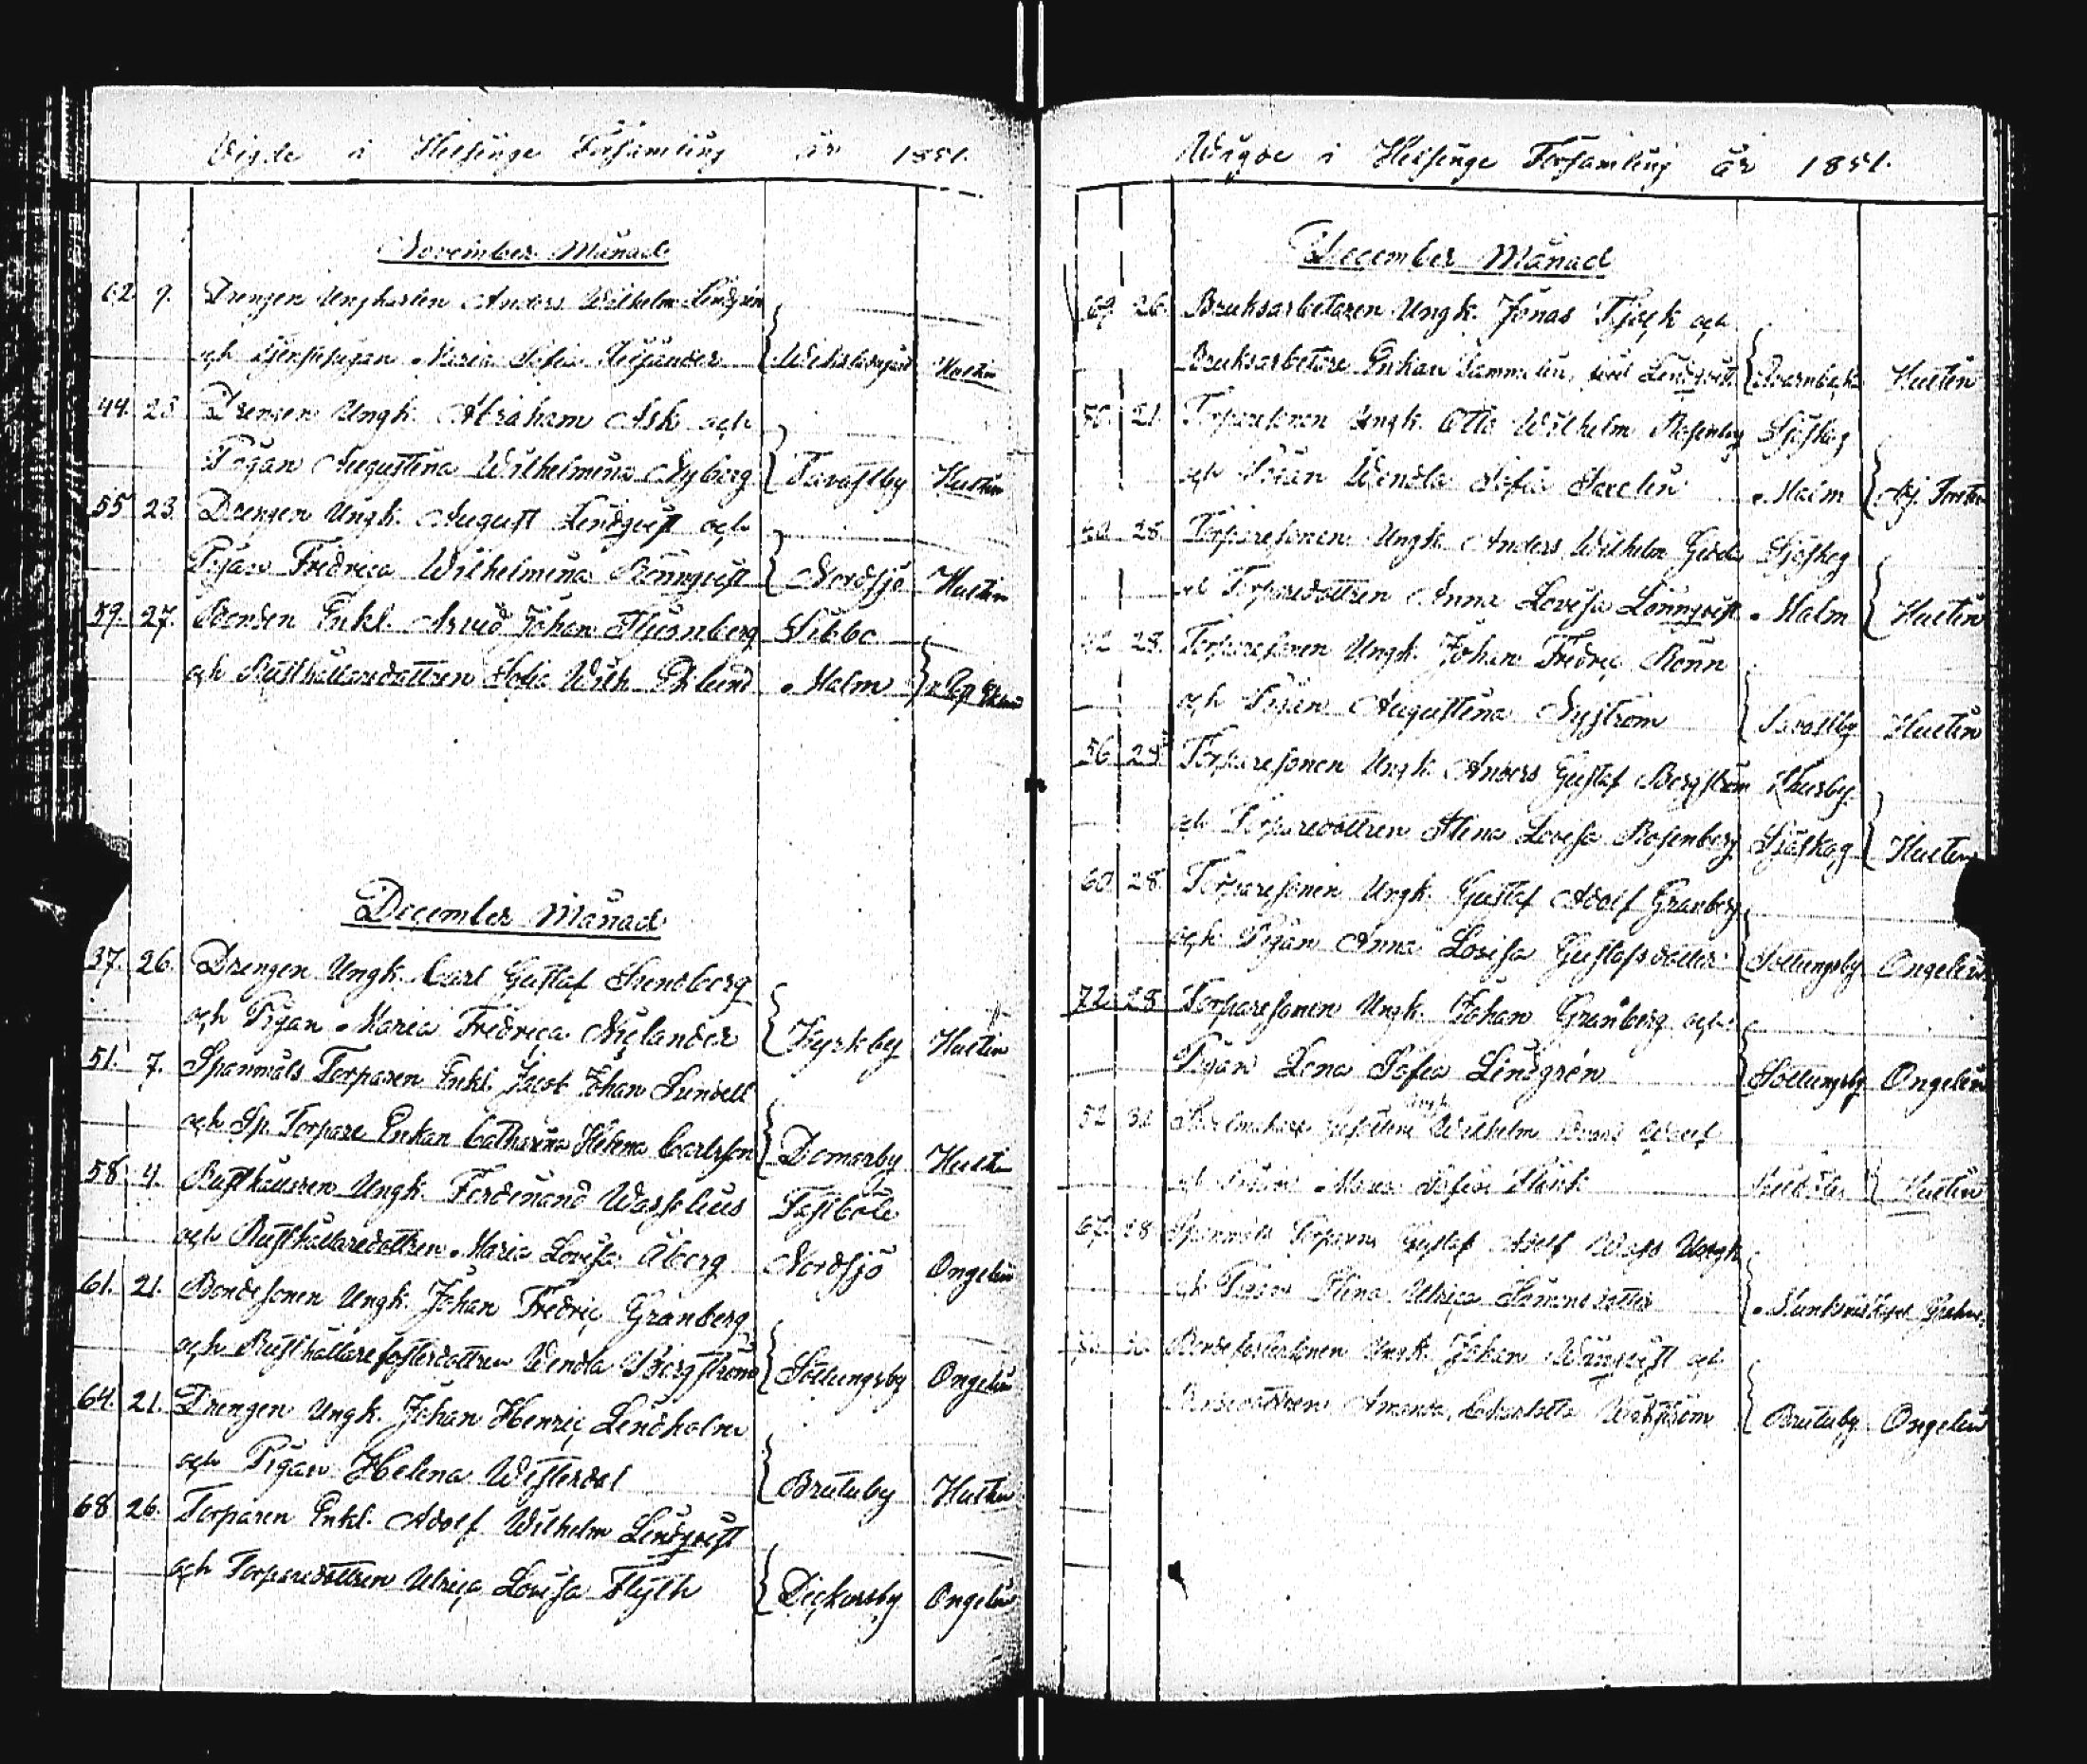 Vigde i Helsinge Församling år 1851.
November Månad
62. 9. Drengen Ungkarlen Anders Wilhelm Lindgren
och Maria Sofia Helsander
44. 23 Drengen Ungk. Abraham Ask och
Pigan Augustina Wilhelmina Nyberg Tavastby Hultin
55 23 Drengen Ungk. August Lindqvist och
Pigan Fredrica Wilhelmina Rönnqvist Nordsjö Hultin
59. 27. Bonden Enkl. Arvid Johan Stjernberg Sibbo
och Rusthållaredottren Sofia Wilh. Eklund Malm
December Månad
37. 26. Drengen Ungk. Carl Gustaf Sundberg
och Pigan Maria Fredrica Nylander Kyrkby Hultin
51. 7. Spanmåls Torparen Enkl. Jacob Johan Sundell
och Sp. Torpare Enkan Catharina Helena Carlsson Domarby Hultin
58. 4. Rusthållaren Ungk. Ferdinand Wasselius Fastböle
och Rusthållaredottren Maria Lovisa Åberg Nordsjö Ongelin
61. 21. Bondesonen Ungk. Johan Fredric Granberg
och Rusthållarefosterdottren Wendla Bergström Sottungsby Ongelin
64. 21. Drengen Ungk. Johan Henric Lindholm
och Pigan Helena Westerdal Brutuby Hultin
68 26. Torparen Enkl. Adolf Wilhelm Lindqvist
och Torparedottren Ulrica Lovisa Flyth Dickursby Ongelin
Wigde i Helsinge Församling år 1851.
December Månad
69. 26. Bruksarbetaren Ungk. Jonas Tjäck och
Bruksarbetare Enkan Lindqvist Qvarnbacka Hultin
50. 21. Torparesonen Ungk. Otto Wilhelm Rosenberg Sjöskog
och Pigan Wendla Sofia Malm
28. Torparesonen Ungk. Anders Wilhelm Sjöskog
och Torparedottren Anna Lovisa Lönnqvist Malm Hultin
28. Torparesonen Ungk. Johan Fredric Rönn
och Pigan Augustina Nyström Tavastby Hultin
56 28 Torparesonen Ungk. Anders Gustaf Bergström Husby
och Torparedottren Stina Lovisa Rosenberg Sjöskog Hultin
60. 28. Torparesonen Ungk. Gustaf Adolf Granberg
och Pigan Anna Lovisa Gustafsdotter Sottungsby Ongelin
72. 28. Torparesonen Ungk. Johan Granberg och
Pigan Lena Sofia Lindgrén Sottungsby Ongelin
52 Ungk. Wilhelm
och Pigan Maria Sofia Hultin
67. 28 Spanmåls Torparen Gustaf Adolf Ungk.
och Pigan Stina Ulrica Simonsdotter
Ungk. Johan och
Amanda Charlotta Brutuby Ongelin